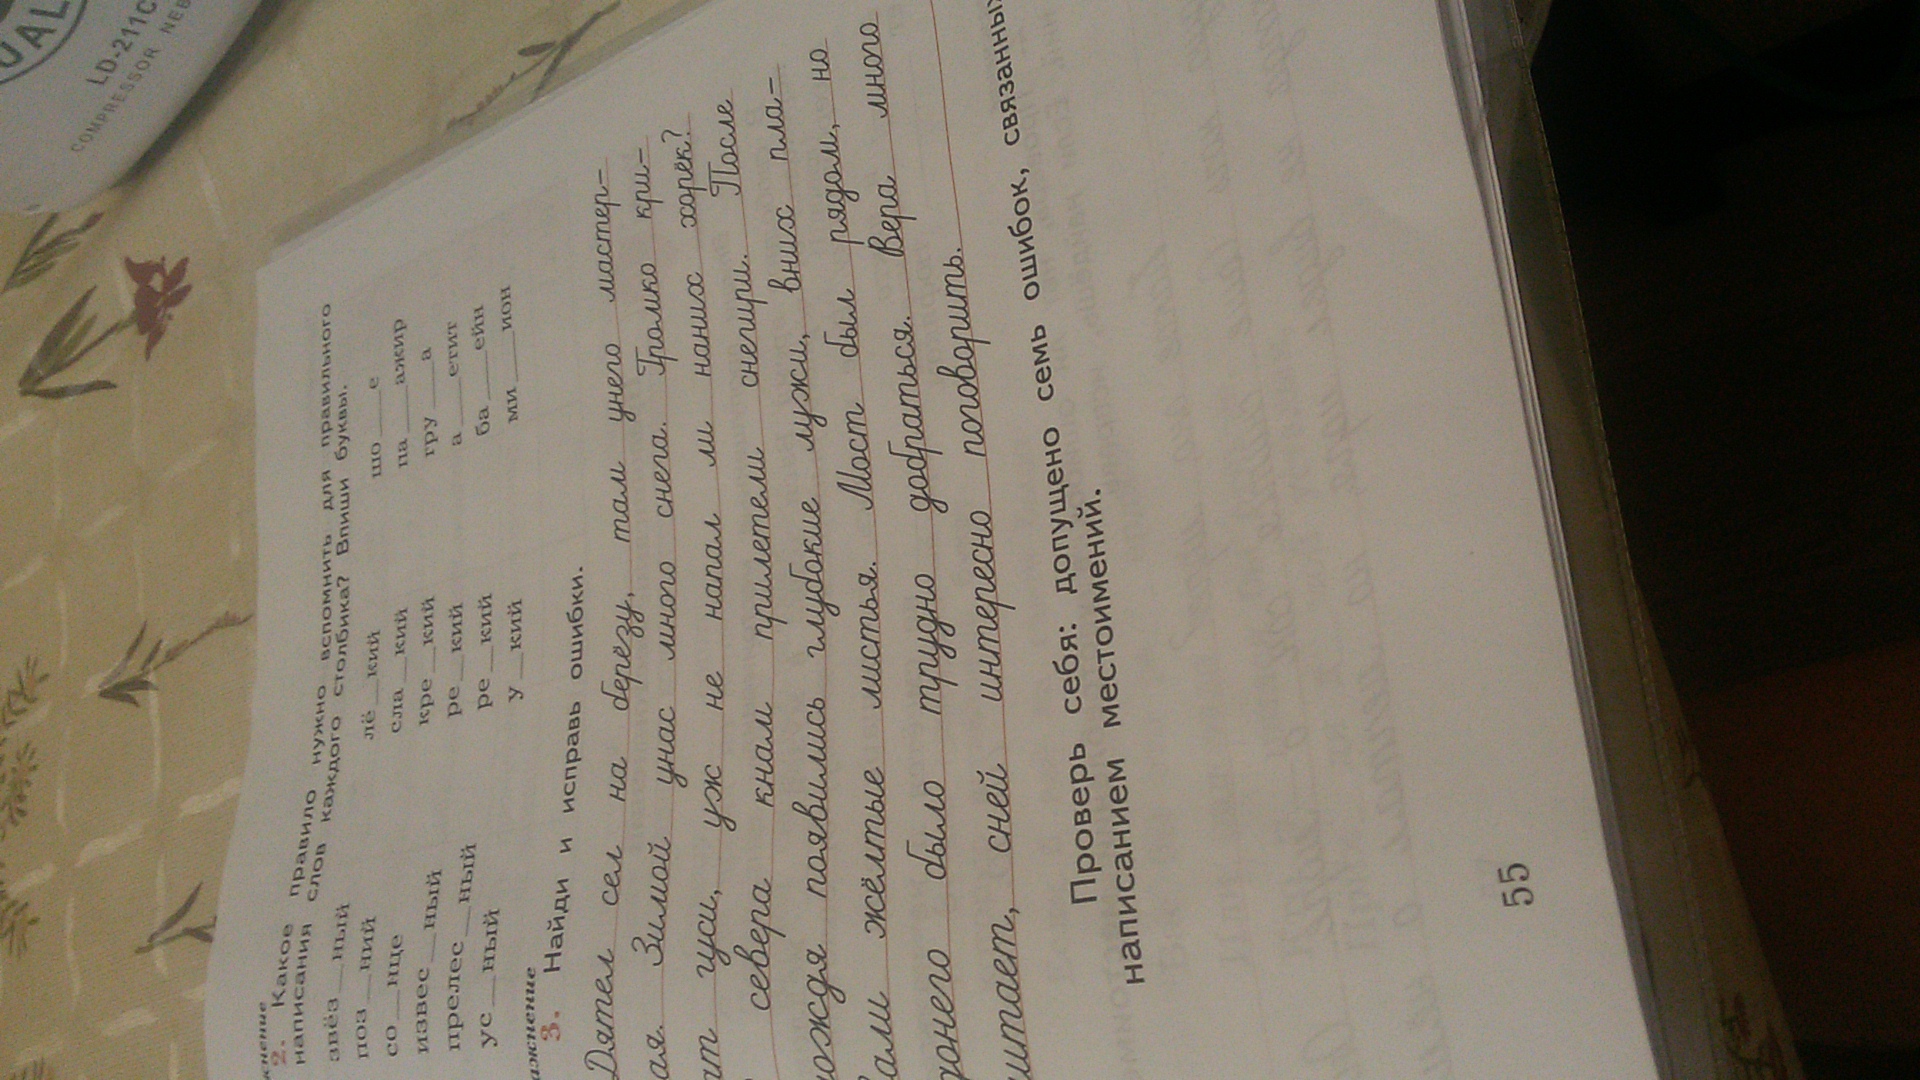 UAL
LD-211C
COMPRESSOR NEB
2. Какое правило нужно вспомнить для правильного
написания слов каждого столбика? Впиши буквы.
звёз__ный лё__кий шо__е
поз__ний сла__кий па__ажир
со__нце кре__кий гру__а
извес__ный ре__кий а__етит
прелес__ный ре__кий ба__ейн
ус__ный у__кий ми__ион
3. Найди и исправь ошибки.
Дятел сел на берёзу, там унего мастер-
ая. Зимой унас много снега. Громко кри-
ат гуси, уж не напал ли наних хорёк?
севера кнам прилетели снегири. После
дождя появились глубокие лужи, вних пла-
али жёлтые листья. Мост был рядом, но
донего было трудно добраться. Вера много
читает, сней интересно поговорить.
Проверь себя: допущено семь ошибок, связанных
написанием местоимений.
55